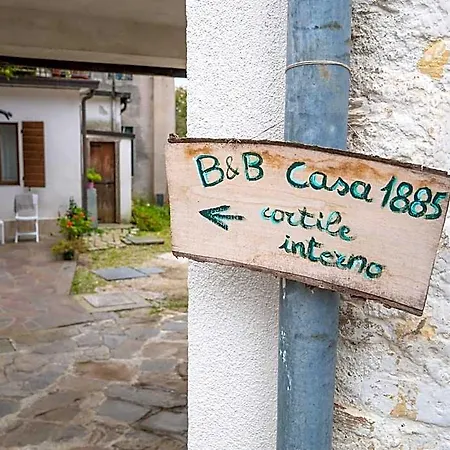 B&B Casa 1885
cortile
interno